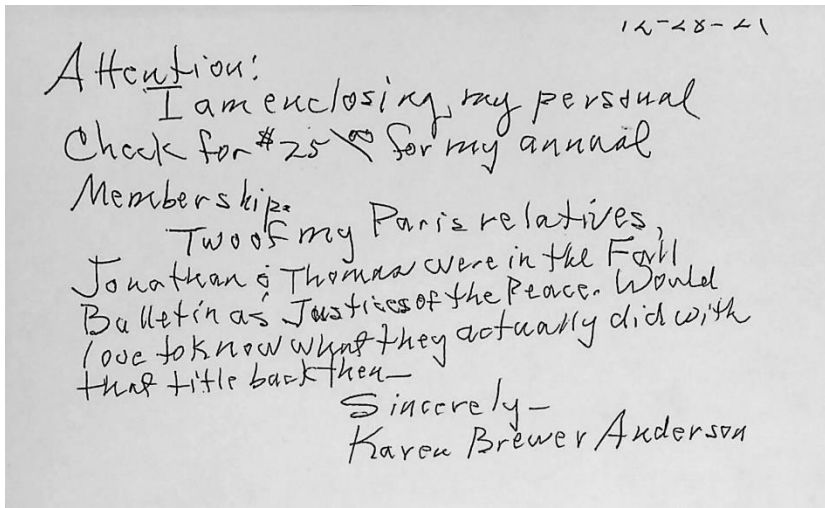 12-28-21
Attention!
I am enclosing my personal
Check for $25 00 for my annual
Membership.
Two of my Paris relatives,
Jonathan & Thomas were in the Fall
Bulletin as Justices of the Peace. Would
love to know what they actually did with
that title back then—
Sincerely—
Karen Brewer Anderson